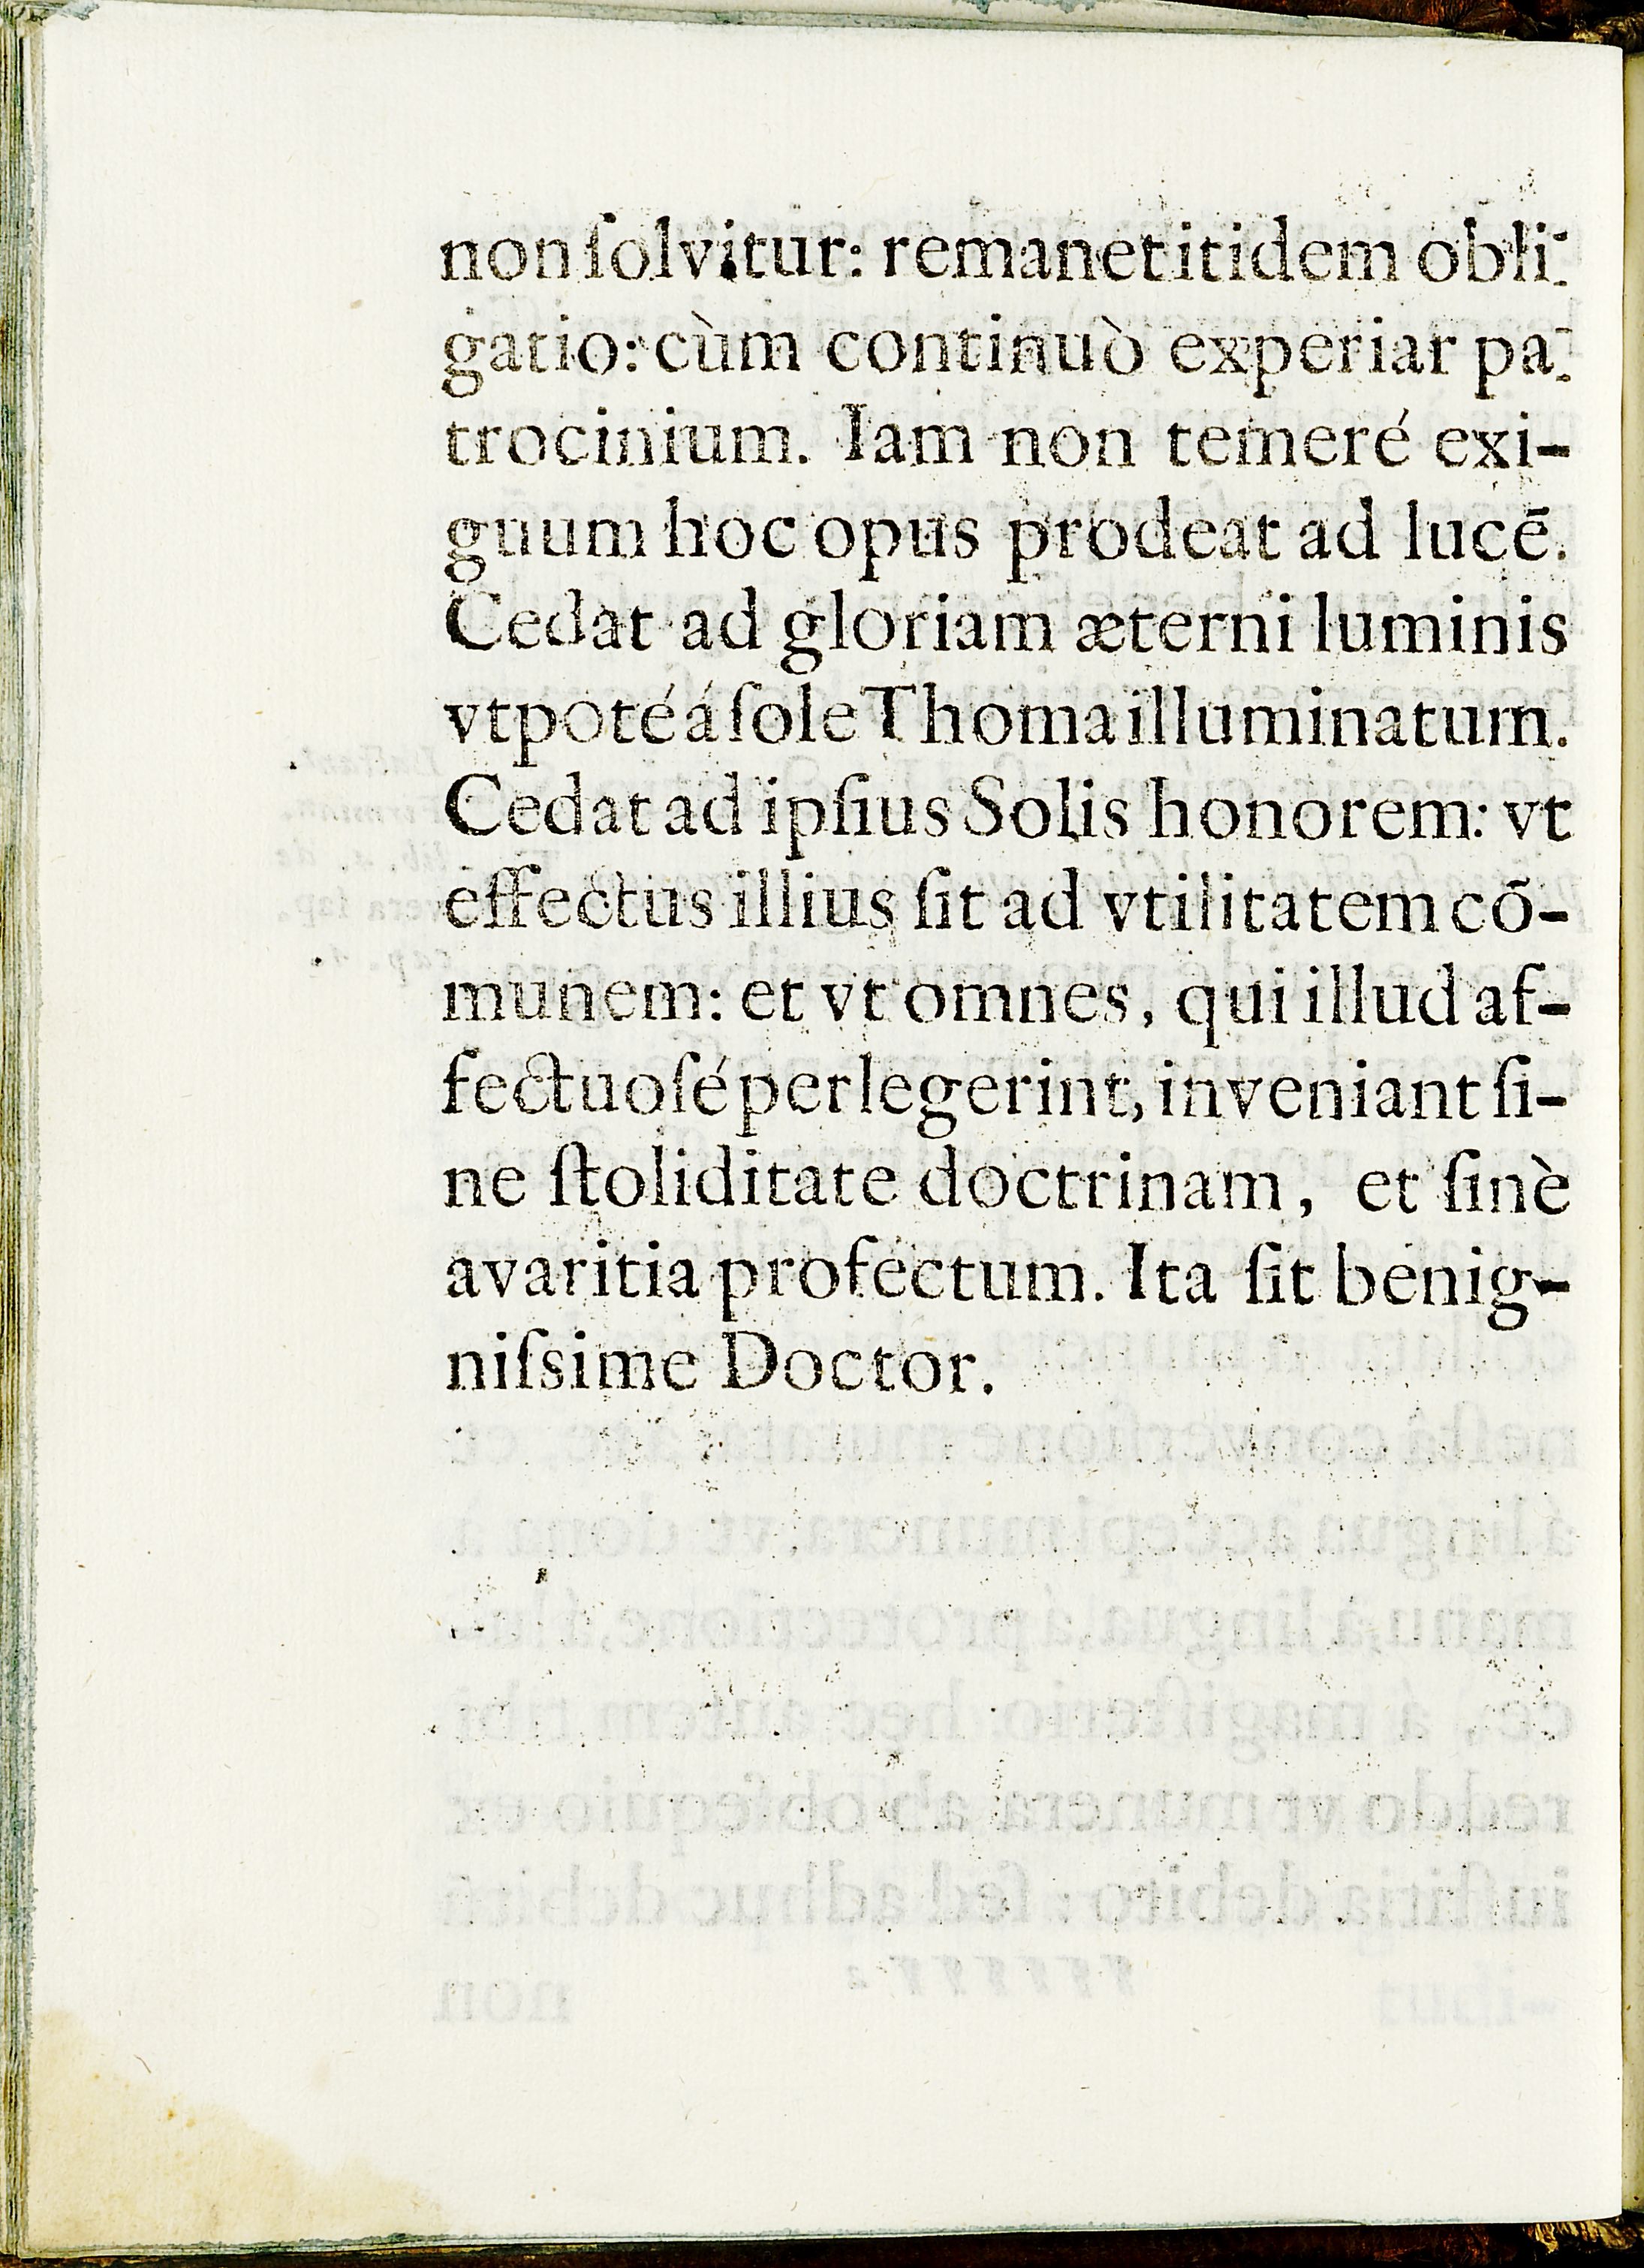 non ſolvitur: remanet itidem obli-
gatio: cùm continuò experiar pa-
trocinium. Iam non temeré exi-
guum hoc opus prodeat ad lucē.
Cedat ad gloriam æterni luminis
vtpoté á ſole Thoma illuminatum.
Cedat ad ipſius Solis honorem: vt
effectus illius ſit ad vtilitatem cō-
munem: et vt omnes, qui illud af-
fectuoſé perlegerint, inveniant ſi-
ne ſtoliditate doctrinam, et ſinè
avaritia profectum. Ita ſit benig-
niſsime Doctor.